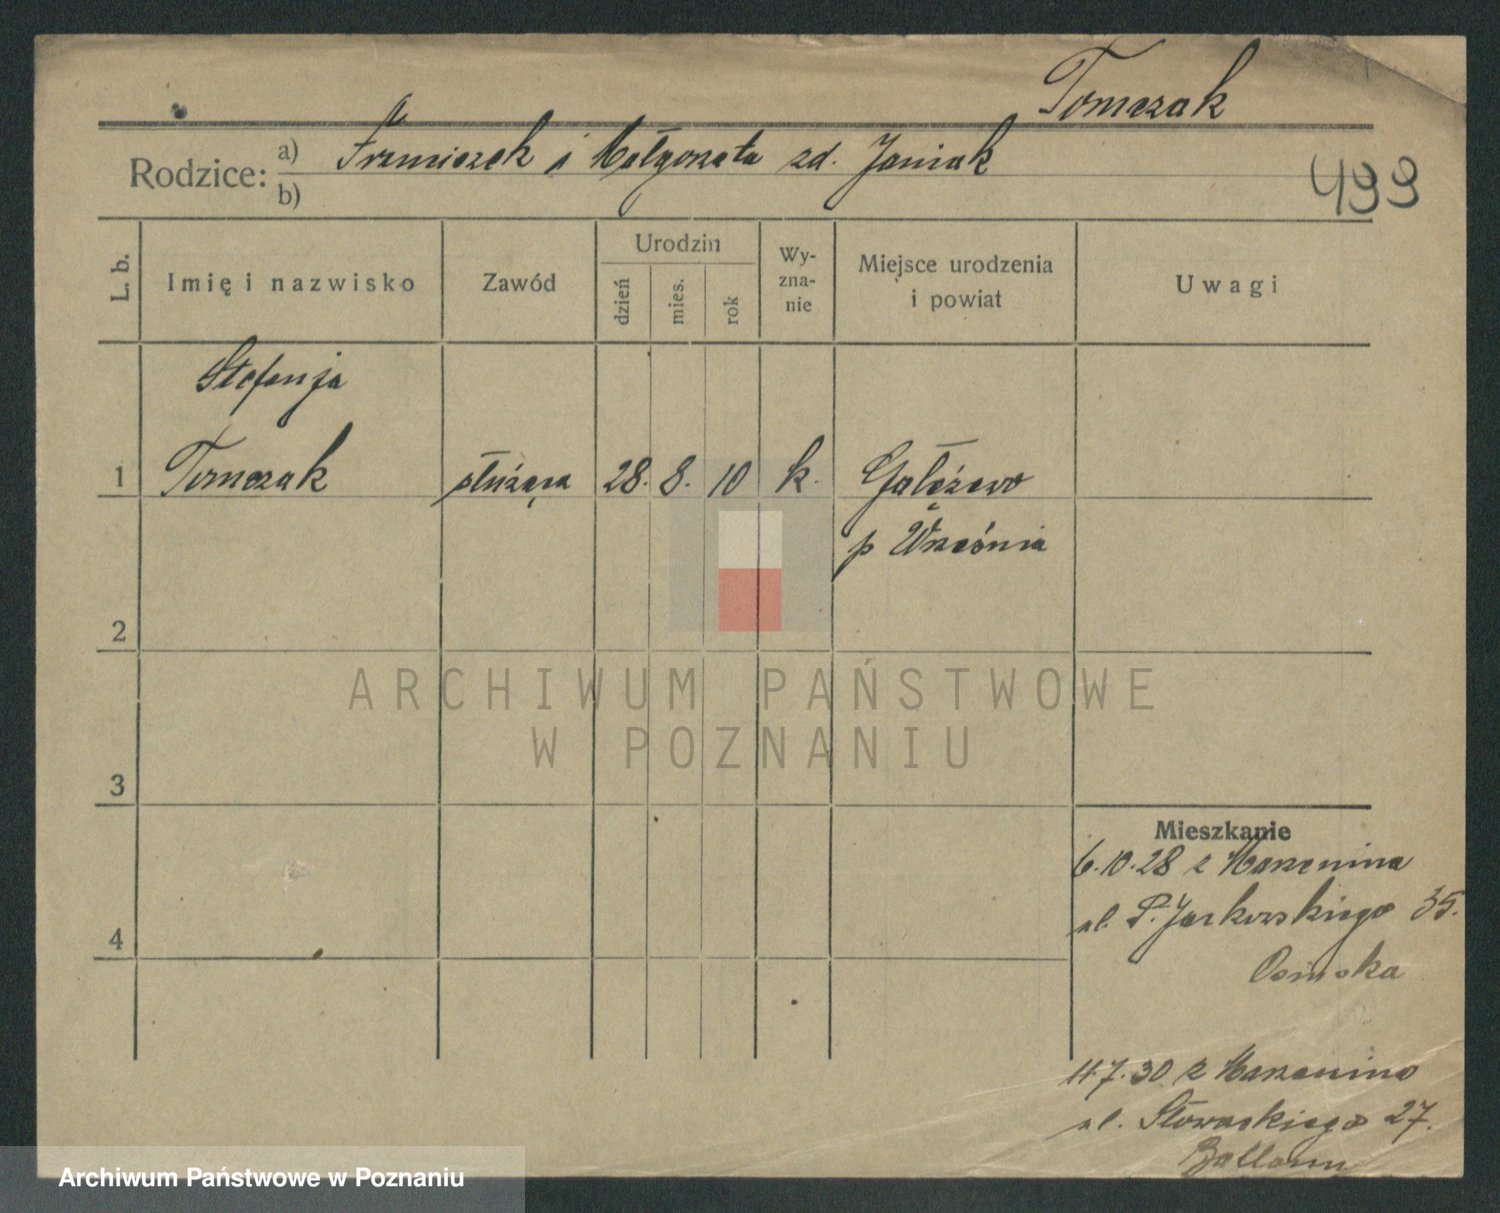 Tomczak
Rodzice: a) Franciszek i Małgorzata zd. Janiak
b)
499
L. b.
Imię i nazwisko
Zawód
Urodzin
dzień
mies.
rok
Wy-
zna-
nie
Miejsce urodzenia
i powiat
Uwagi
Stefanja
1 Tomczak służąca 28. 8. 10 k. Gałęzewo
p Września
2
3
4
Mieszkanie
6.10.28 z Marzenina
ul. P. Jackowskiego 35.
Osinska
11.7.30 z Marzenino
ul. Słowackiego 27.
ARCHIWUM PAŃSTWOWE
W POZNANIU
Archiwum Państwowe w Poznaniu